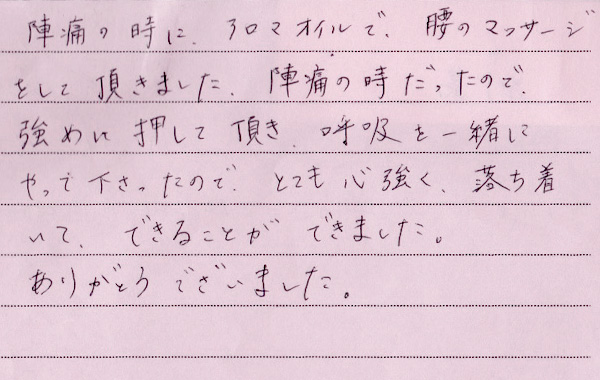 陣痛の時に、アロマオイルで、腰のマッサージ
をして頂きました。陣痛の時だったので、
強めに押して頂き、呼吸を一緒に
やって下さったので、とても心強く、落ち着
いて、できることができました。
ありがとうございました。